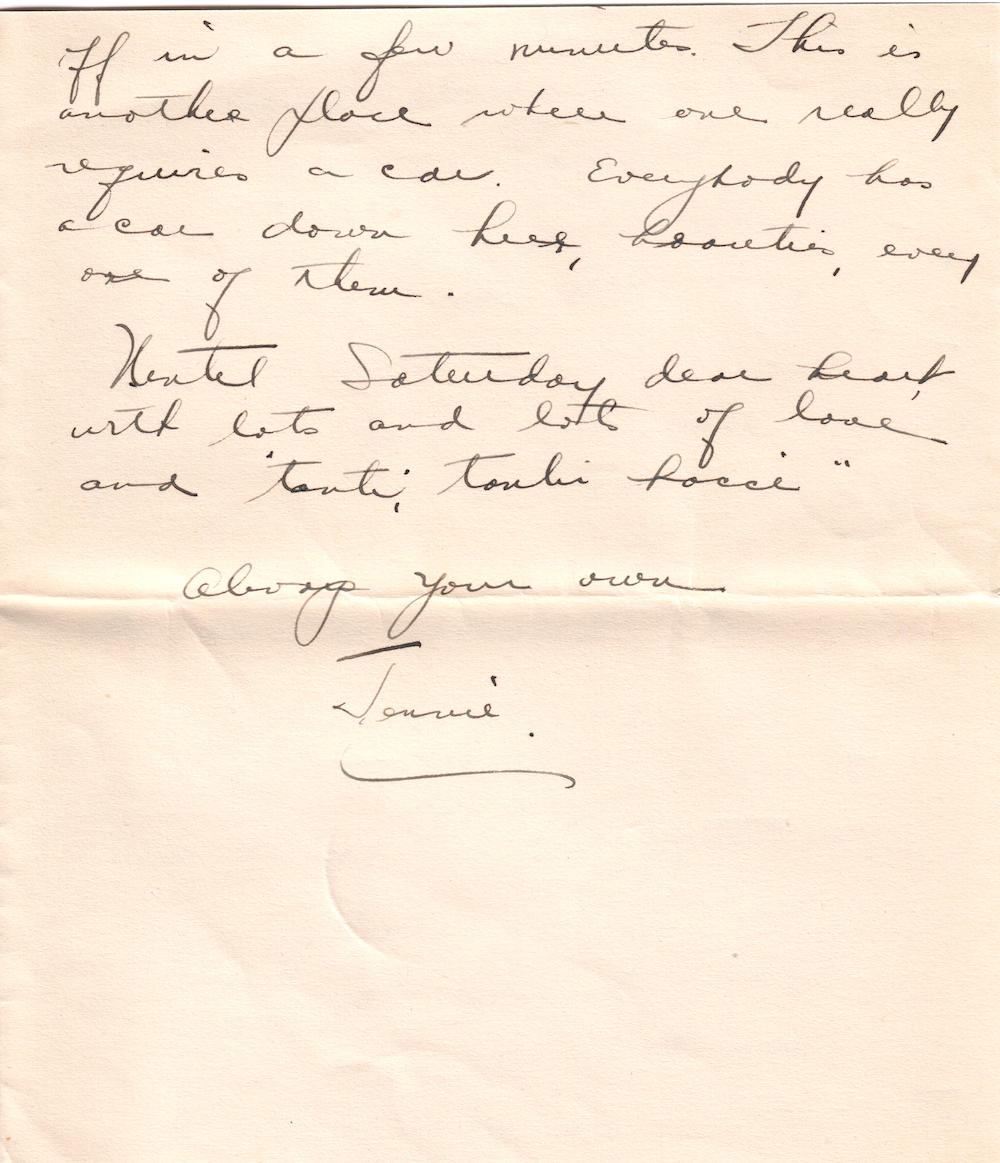 off in a few minutes. This is
another place where one really
requires a car. Everybody has
a car down here, beauties, every
one of them.
Until Saturday dear heart,
with lots and lots of love
and "tanti, tanti bacci"
Always your own
Jennie.